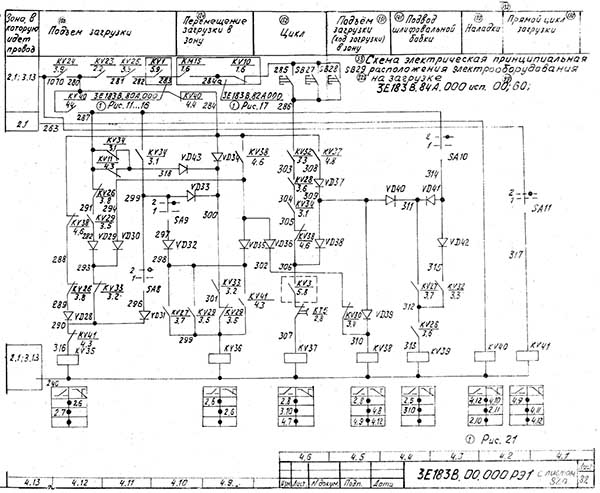 Зона, в которую идет провод
Подъем загрузки
Перемещение загрузки в зону
Цикл
Подъём загрузки (ход загрузки) в зону
Подвод шлифовальной бабки
Наладка
Прямой цикл загрузки
2.1; 3.13
KV24
3.9
KV23
KV25
KV1
3.9
KM15
1.6
KV10
1.6
285
SB27
SB28
SB29
Схема электрическая принципиальная
расположения электрооборудования
на загрузке
3Е183В.84А.000 исп. 00; 60;
1070
280
281
282
283
284а
KV40
4.4
3Е183В.80А.000
① Рис. 11...16
KV40
4.4
3Е183В.82А.000
284
① Рис. 17
286
2.1
263
287
KV34
3.1
KV11
4.3
KV34
3.1
VD43
318
VD34
KV38
4.6
KV32
3.3
KV37
4.8
SA10
303
308
VD37
314
KV26
3.8
291
294
299
VD33
KV28
3.6
309
VD40
VD41
KV38
4.6
KV29
3.5
2
1
SA9
300
304
KV34
3.1
311
SA11
292
VD29
VD30
297
VD32
305
KV38
4.6
VD38
VD42
288
293
298
VD35
VD36
302
306
315
317
SA8
KV36
3.8
KV35
3.2
301
KV33
3.2
KV41
4.3
KV3
5.8
312
KV27
3.7
KV32
3.3
289
VD28
296
VD31
KV27
3.7
KV29
3.5
KV29
3.5
KV30
3.4
VD39
290
299
307
310
KV28
3.6
KV41
4.3
316
KV35
KV36
KV37
KV38
313
KV39
KV40
KV41
2.1; 3.13
240
2.6
2.7
2.6
2.6
2.8
3.10
4.7
2.8
4.8
4.9
4.12
2.5
3.10
4.12
4.10
2.11
2.10
4.9
4.11
4.12
① Рис. 21
4.6
4.5
4.4
4.3
4.2
4.1
Изм
Лист
N докум
Подп.
Дата
3Е183В.00.000РЭ1
с листом 82а
Лист
82
4.13
4.12
4.11
4.10
4.9